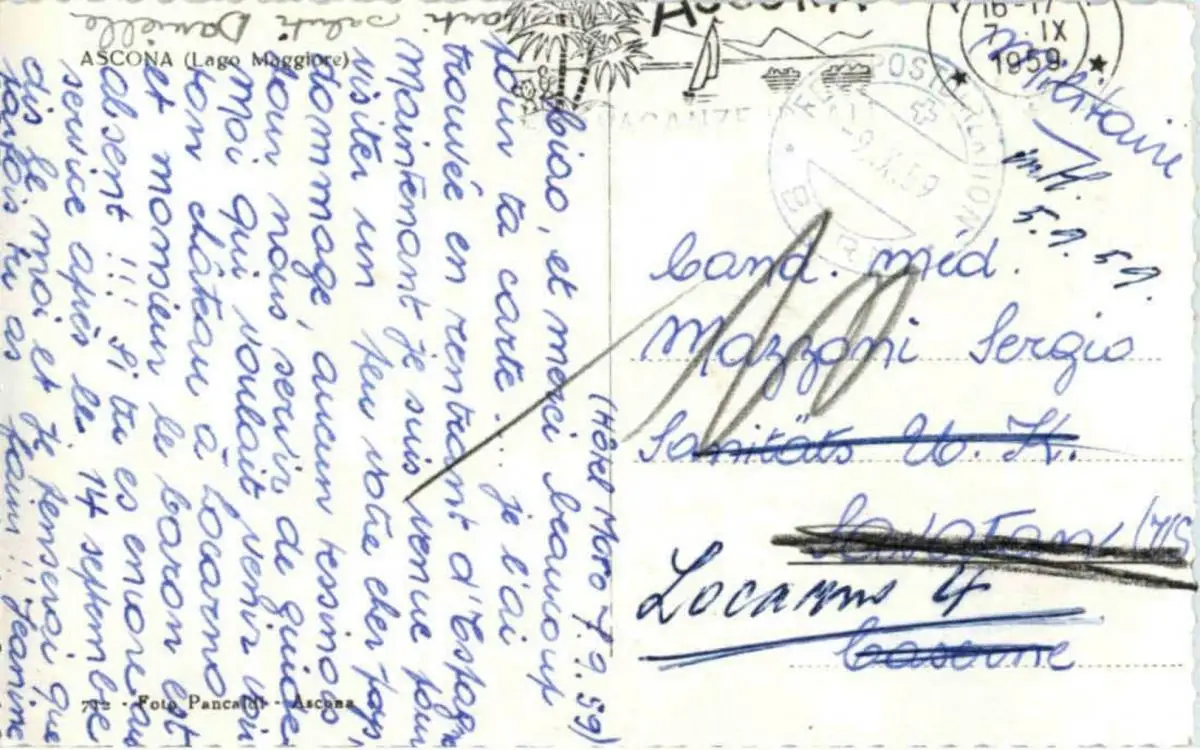 (Hôtel Moro 7.9.59)
Ciao, et merci beaucoup
pour ta carte ... je l'ai
trouvée en rentrant d'Espagn
Maintenant je suis venue pour
visiter un peu votre cher pays,
dommage, aucun
pour nous servir de guide
Moi qui voulait venir voir
ton château à Locarno
et monsieur le baron est
absent !!! Si tu es encore au
service après le 14 septembre
dis le moi et je penserai que
tu as faim !! Jeanine
saluti Danielle
ASCONA (Lago Maggiore)
712 - Foto Pancaldi - Ascona
ASCONA
VACANZE
16-17
7. IX
1959
9.IX.59
Militaire
5.9.59.
Cand. méd.
Mazzoni Sergio
Sanitäts U. K.
Savatan (VS
Locarno 4
Caserne